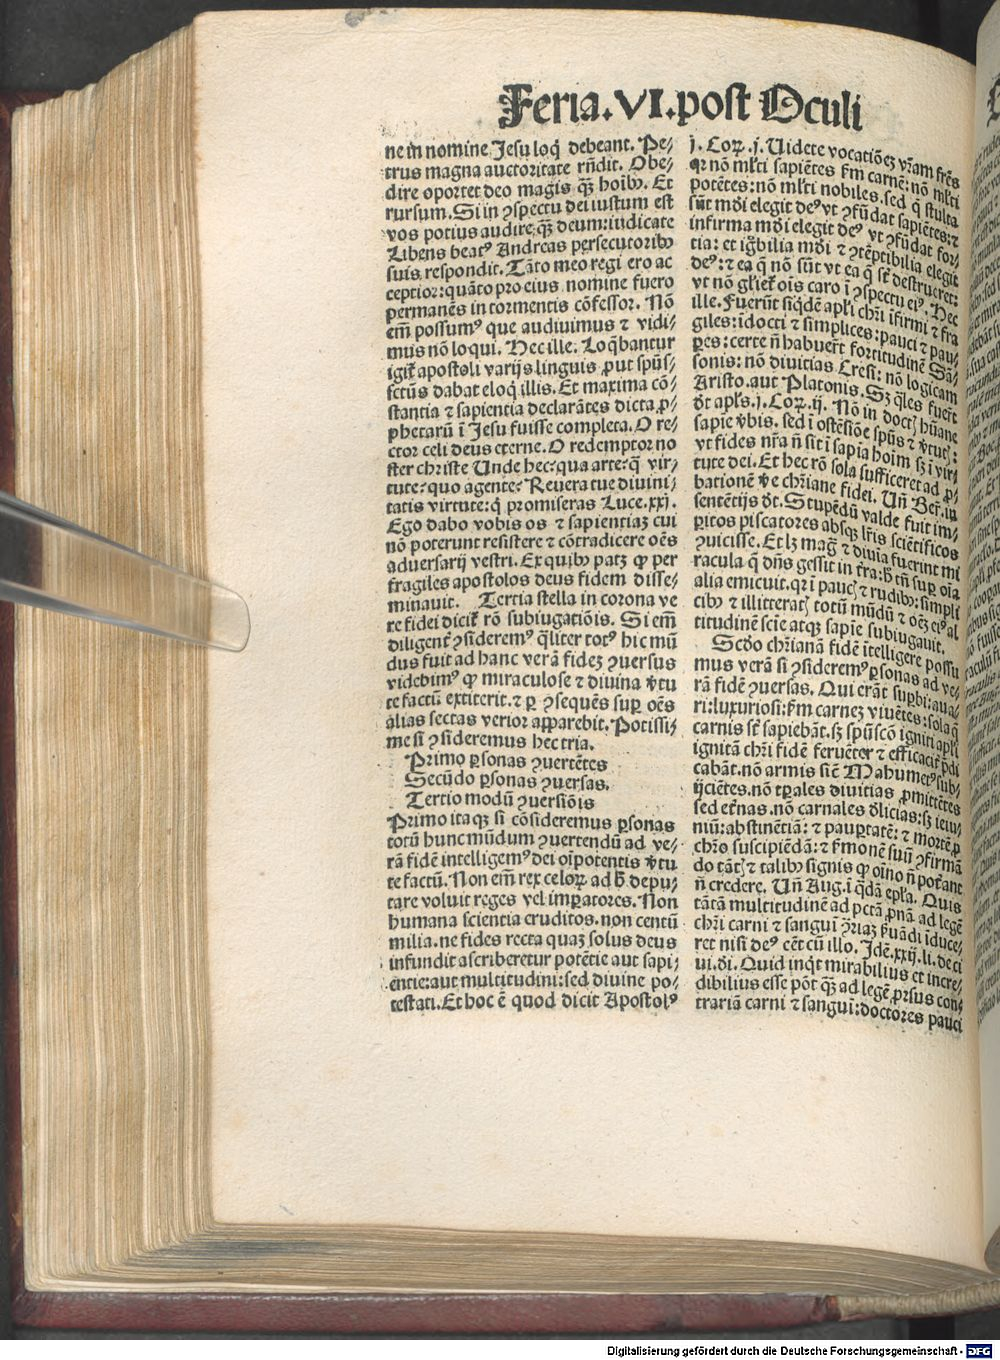 Feria.VI.post Oculi
ne in nomine Jesu loq̄ debeant. Pe⸗
trus magna auctoritate rn̄dit. Obe⸗
dire oportet deo magis q̄ꝫ hoibꝰ. Et
rursum. Si in ꝯspectu dei iustum est
vos potius audire q̄ꝫ deum: iudicate
Libens beatꝰ Andreas persecutoribꝰ
suis respondit. Tāto meo regi ero ac
ceptior: quāto pro eius nomine fuero
permanēs in tormentis cōfessor. Nō
em̄ possumꝰ que audiuimus ⁊ vidi⸗
mus nō loqui. Hec ille. Loq̄bantur
igit᷑ apostoli varijs linguis ꝓut spūs⸗
sctūs dabat eloq̄ illis. Et maxima cō⸗
stantia ⁊ sapientia declarātes dicta ꝓ⸗
phetarū ī Jesu fuisse completa. O re⸗
ctor celi deus eterne. O redemptor no
ster christe Unde hec: qua arte: q̄ vir⸗
tute: quo agente: Reuera tue diuini⸗
tatis virtute: q̄ promiseras Luce.xxj.
Ego dabo vobis os ⁊ sapientiaꝫ cui
nō poterunt resistere ⁊ cōtradicere oēs
aduersarij vestri. Ex quibꝰ patꝫ ꝙ per
fragiles apostolos deus fidem disse⸗
minauit. Tertia stella in corona ve
re fidei dicit᷑ rō subiugatiōis. Si em̄
diligent᷑ ꝯsideremꝰ q̄liter totꝰ hic mū
dus fuit ad hanc verā fideꝫ ꝯuersus
videbimꝰ ꝙ miraculose ⁊ diuina v̄tu
te factū extiterit. ⁊ ꝑ ꝯsequēs suꝑ oēs
alias sectas verior apparebit. Potissi⸗
me si ꝯsideremus hec tria.
Primo ꝑsonas ꝯuertētes
Secūdo ꝑsonas ꝯuersas.
Tertio modū ꝯuersiōis
Primo itaqꝫ si cōsideremus ꝑsonas
totū hunc mūdum ꝯuertendū ad ve⸗
rā fidē intelligemꝰ dei oīpotentis v̄tu
te factū. Non em̄ rex celoꝝ ad h̄ depu⸗
tare voluit reges vel imꝑatores. Non
humana scientia eruditos. non centū
milia. ne fides recta quaꝫ solus deus
infundit ascriberetur potētie aut sapi⸗
entie: aut multitudini: sed diuine po⸗
testati. Et hoc ē quod dicit Apostolꝰ
j. Coꝝ.j. Uidete vocatiōeꝫ vr̄am frēs
qr nō ml̄ti sapiētes f̄m carnē: nō ml̄ti
potētes: nō ml̄ti nobiles. sed q̄ stulta
sūt mūdi elegit deꝰ vt ꝯfūdat sapiētes: ⁊
infirma mūdi elegit deꝰ vt ꝯfūdat for⸗
tia: et ignobilia mūdi ⁊ ꝯtēptibilia elegit
deꝰ: ⁊ ea q̄ nō sūt vt ea q̄ st̄ destrueret:
vt nō gl̄iet᷑ oīs caro ī ꝯspectu eiꝰ. Hec
ille. Fuerūt siq̄dē apl̄i chr̄i īfirmi ⁊ fra
giles: īdocti ⁊ simplices: pauci ⁊ pau⸗
ꝑes: certe n̄ habuer̄t fortitudinē Sā⸗
sonis: nō diuitias Cresi: nō logicam
Aristo. aut Platonis. Sꝫ q̄les fuer̄t
d̄t apl̄s.j. Coꝝ.ij. Nō in doctꝭ hūane
sapie v̄bis. sed ī ostēsiōe spūs ⁊ v̄tutꝭ:
vt fides nr̄a n̄ sit ī sapīa hoim sꝫ ī vir⸗
tute dei. Et hec rō sola sufficeret ad ꝓ⸗
bationē v̄e chr̄iane fidei. Un̄ Ber. in
sentētijs d̄t. Stupēdū valde fuit im⸗
ꝑitos piscatores absqꝫ lr̄is sciētificos
ꝯuicisse. Et lꝫ maḡ ⁊ diuīa fuerint mi
racula q̄ dn̄s gessit in t̄ra: h̄ tn̄ suꝑ oīa
alia emicuit. qr ī paucꝭ ⁊ rudibꝰ: simpli
cibꝰ ⁊ illitteratꝭ totū mūdū ⁊ oēꝫ eiꝰ al
titudinē scie atqꝫ sapīe subiugauit.
Scd̄o chr̄ianā fidē ītelligere possu
mus verā si ꝯsideremꝰ ꝑsonas ad ve⸗
rā fidē ꝯuersas. Qui erāt suꝑbi: aua⸗
ri: luxuriosi: f̄m carneꝫ viuētes: sola q̄
carnis st̄ sapiebāt. sꝫ spūscō igniti apl̄i
ignitā chr̄i fidē feruēter ⁊ efficacit᷑ p̄di
cabāt. nō armis sic̄ Mahumetꝰ sub⸗
ijciētes. nō tꝑales diuitias ꝓmittētes
sed et̄nas. nō carnales d̄licias: sꝫ ieiu⸗
niū: abstinētiā: ⁊ pauꝑtatē: ⁊ mortē ꝓ
chr̄o suscipiēdā: ⁊ f̄monē suū ꝯfirmā
do tātꝭ ⁊ talibꝰ signis ꝙ oīno n̄ poter̄ant
n̄ credere. Un̄ Aug. ī q̄dā epl̄a. Quis
tātā multitudinē ad pctā ꝓnā ad legē
chr̄i carni ⁊ sanguī ꝯ̄riaꝫ s̄uādi īduce⸗
ret nisi deꝰ cēt cū illo. Idē.xxij. li. de ci
ui. di. Quid inq̄t mirabilius et incre⸗
dibilius esse pōt q̄ꝫ ad legē ꝓrsus con⸗
trariā carni ⁊ sanguī: doctores pauci
Digitalisierung gefördert durch die Deutsche Forschungsgemeinschaft - DFG